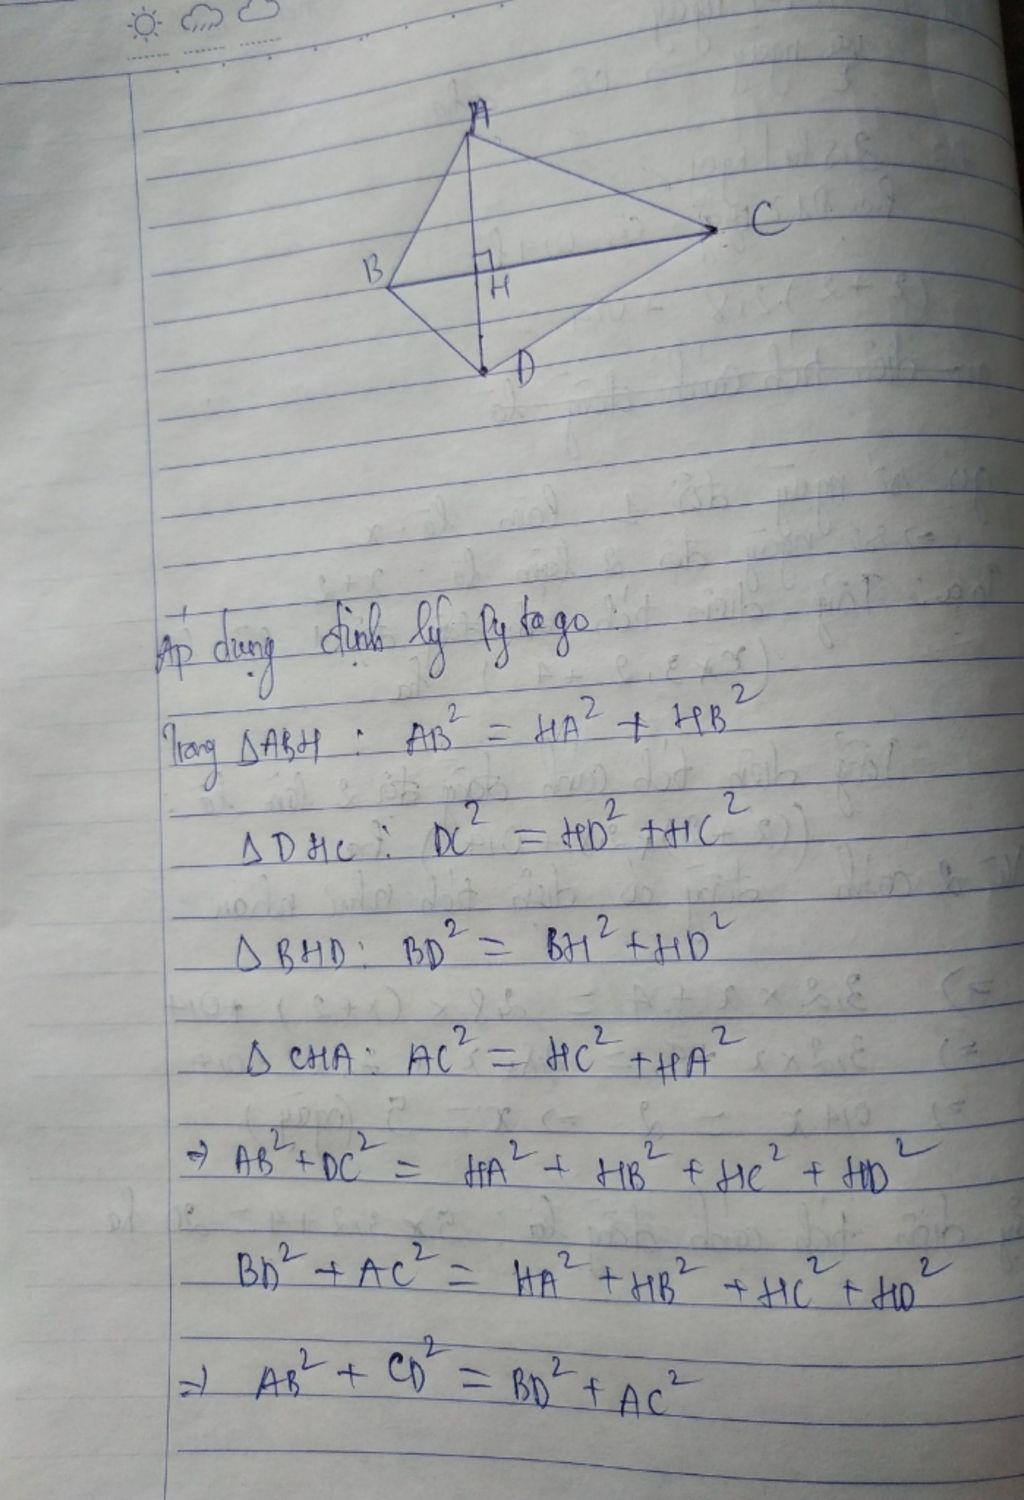 A
C
B
H
D
Áp dụng định lý Pytago:
Trong ΔABH : AB² = HA² + HB²
ΔDHC : DC² = HD² + HC²
ΔBHD : BD² = BH² + HD²
ΔCHA : AC² = HC² + HA²
⇒ AB² + DC² = HA² + HB² + HC² + HD²
BD² + AC² = HA² + HB² + HC² + HD²
⇒ AB² + CD² = BD² + AC²